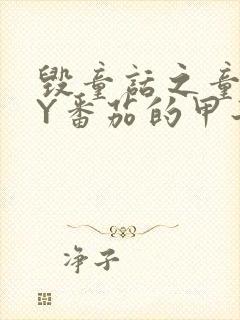 毁童话之童
Y番茄的甲
净子